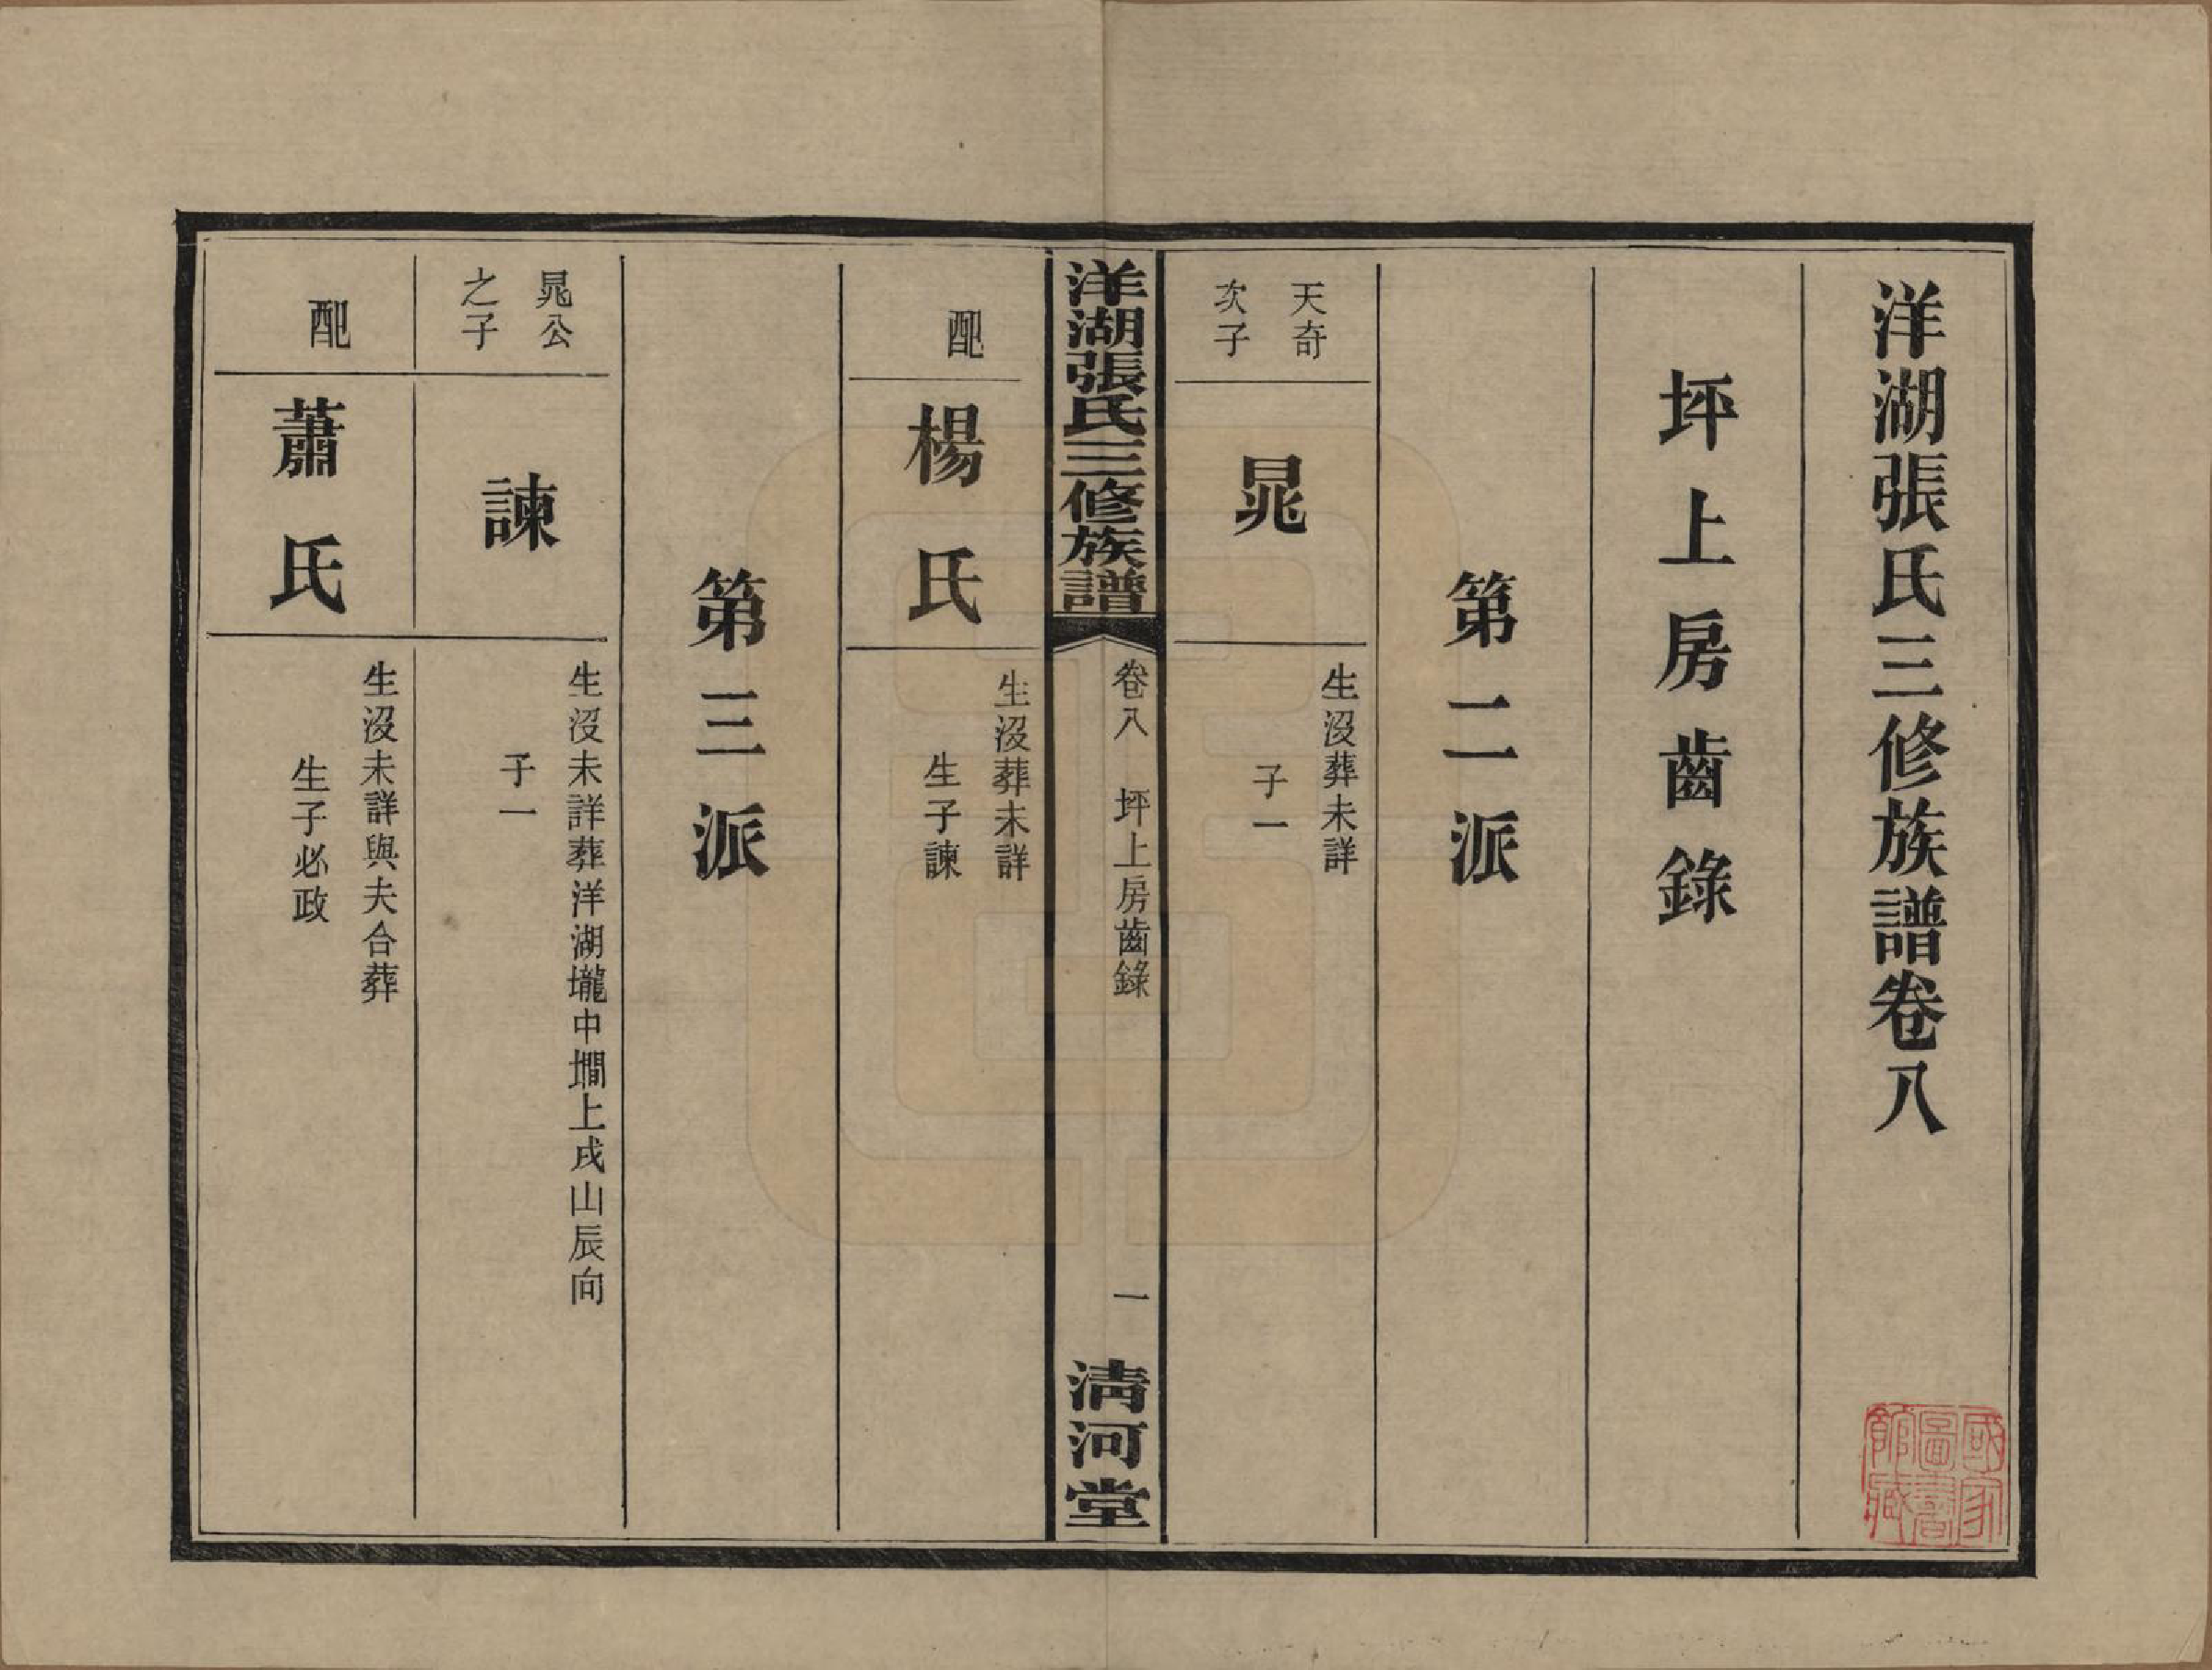 洋湖張氏三修族譜卷八
坪上房齒錄
第二派
天奇
次子
晁
生沒葬未詳
子一
洋湖張氏三修族譜
卷八
坪上房齒錄
一
清河堂
配
楊氏
生沒葬未詳
生子諫
第三派
晁公
之子
諫
生沒未詳葬洋湖壠中墹上戌山辰向
子一
配
蕭氏
生沒未詳與夫合葬
生子必政
國家
圖書
館藏